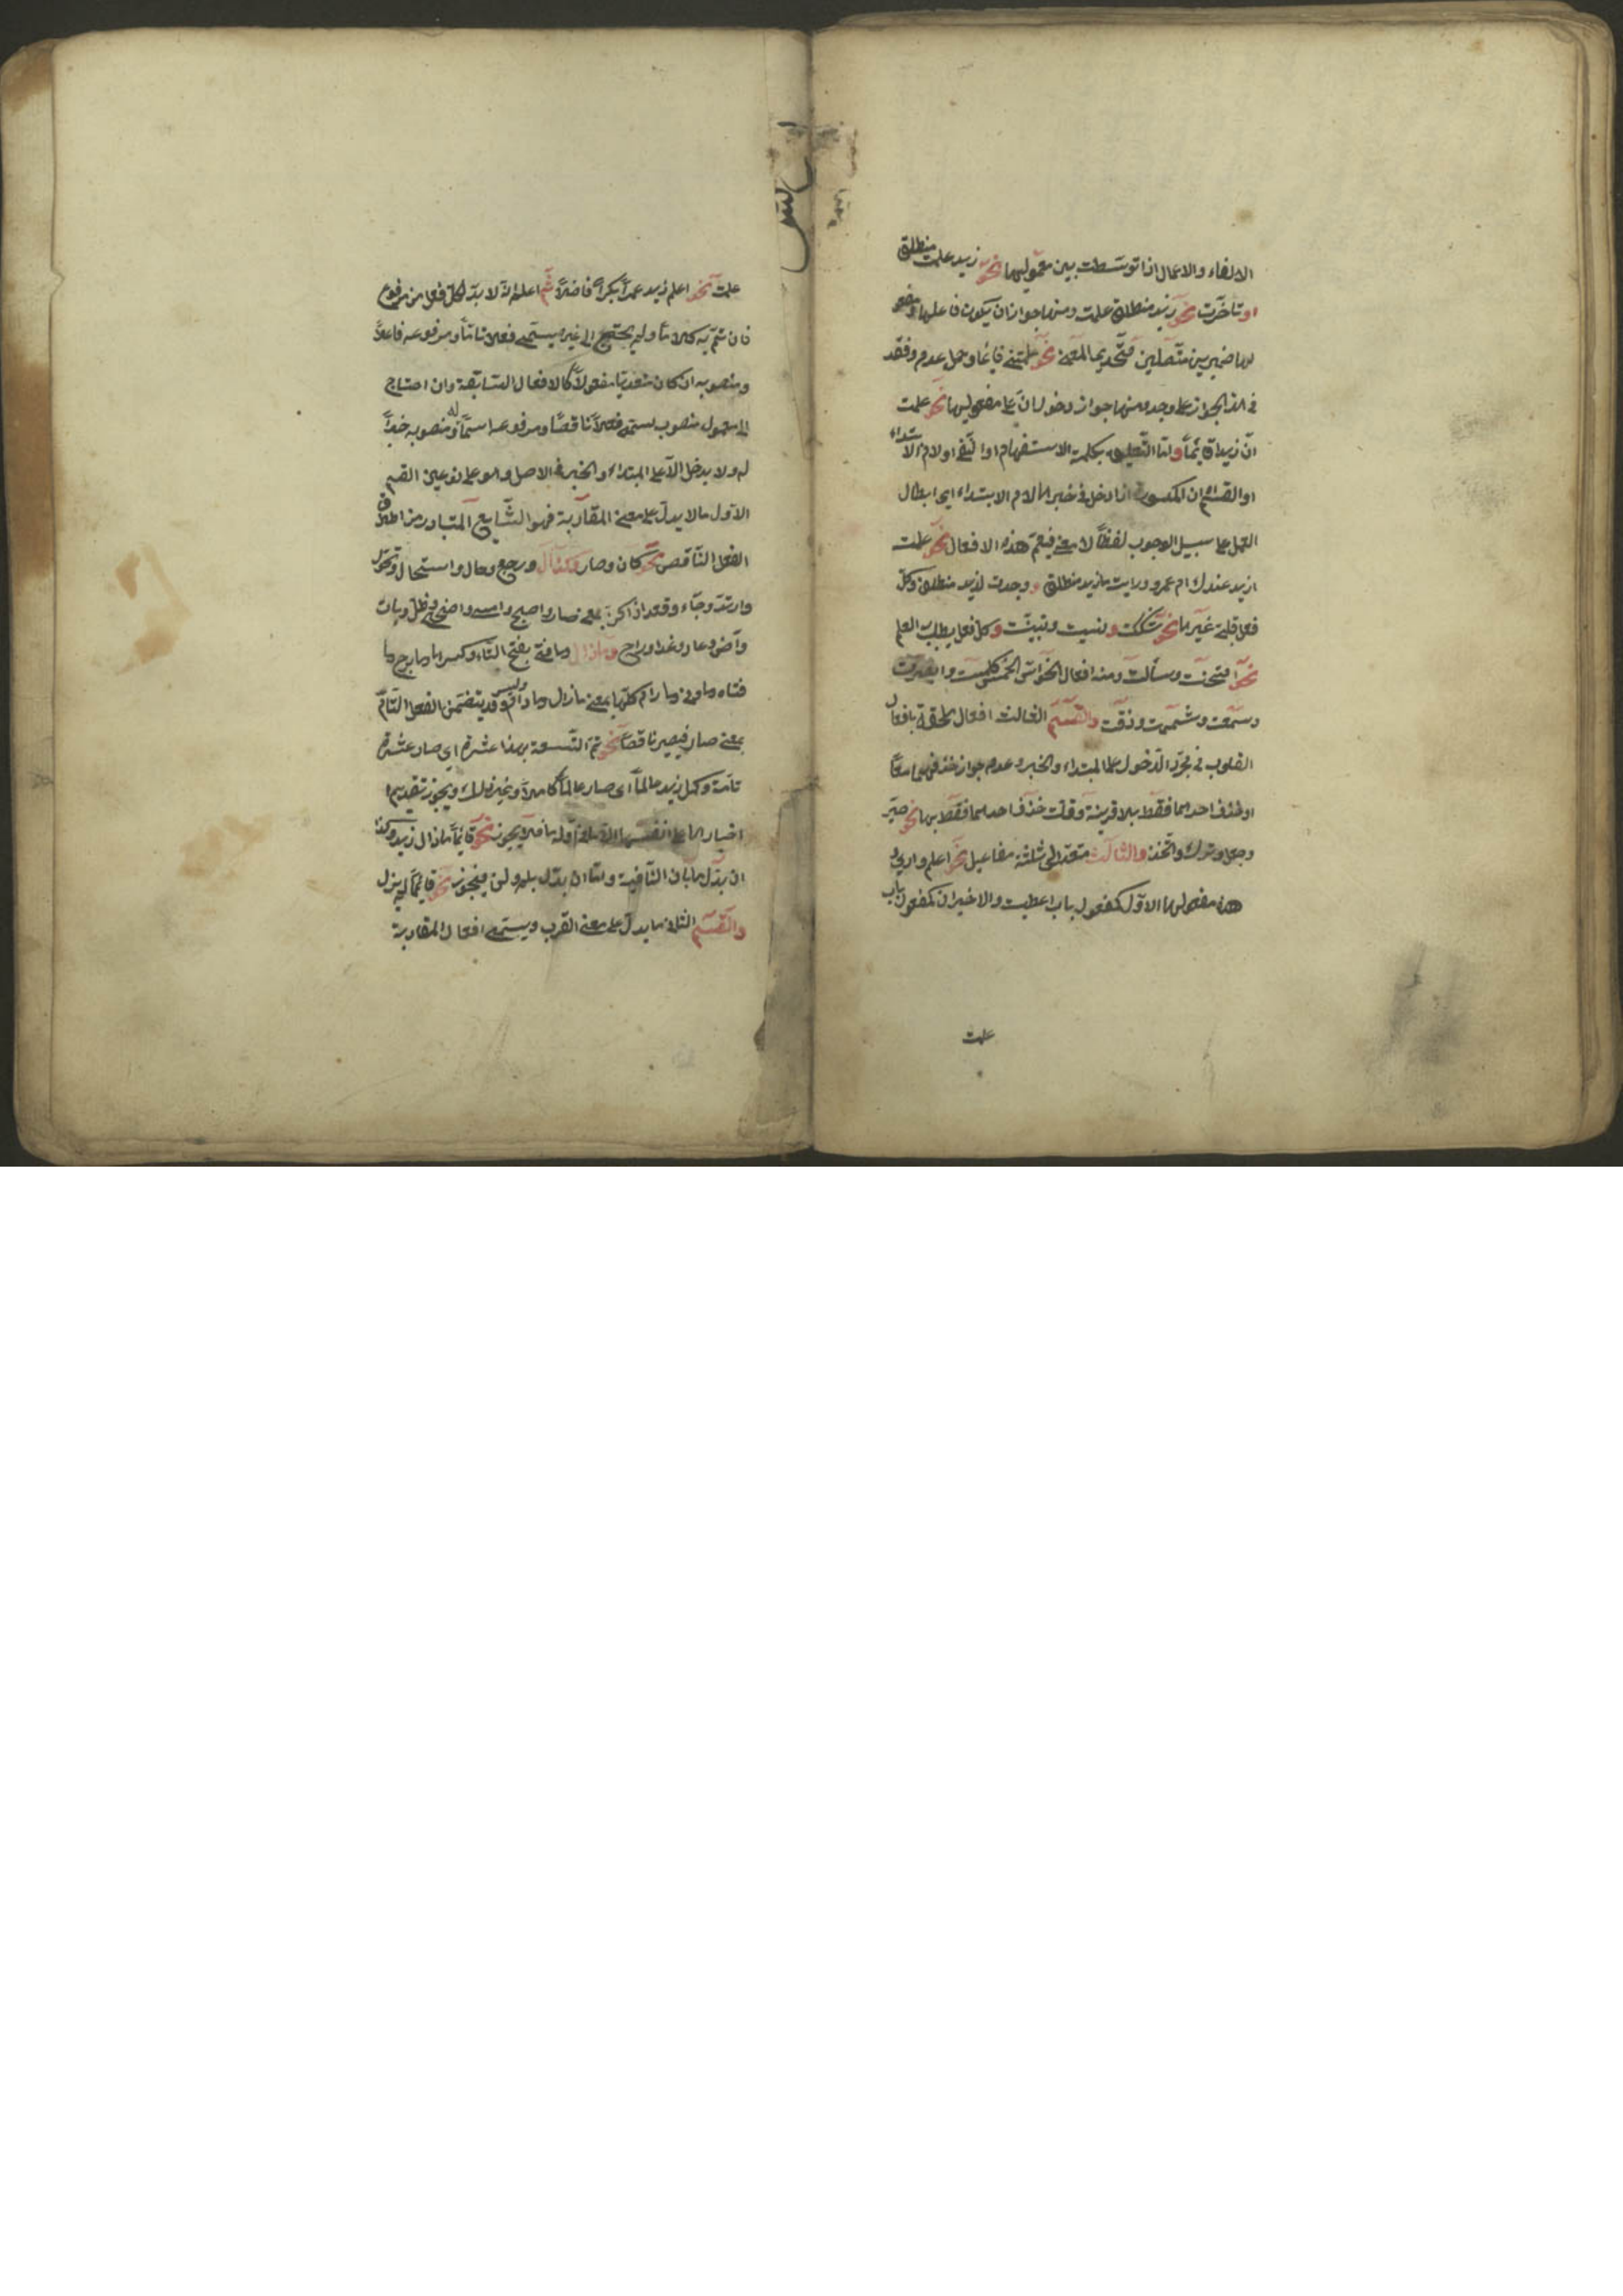 الالغاء والاعمال اذا توسطت بين معموليها نحو زيد علمت منطلق
او تأخرت نحو زيد منطلق علمت ومنها جواز ان يكون فاعلها ومفعو
لها ضميرين متصلين متحدي المعنى نحو علمتنى قائما وحمل عدم وفقد
فى هذا الجواز على وجد ومنها جواز دخول ان على مفعوليها نحو علمت
ان زيدا قائما واما التعليق بكلمة الاستفهام او النفى او لام الابتداء
او القسم او ان المكسورة اذا دخل فى خبرها لام الابتداء اى ابطال
العمل على سبيل الوجوب لفظا لا معنى فيعم هذه الافعال نحو علمت
ازيد عندك ام عمرو ورايت ما زيد منطلق و وجدت لزيد منطلق وكل
فعل قلبى غيرها نحو شككت ونسيت وتبينت وكل فعل يطلب به العلم
نحو امتحنت وسألت ومنه افعال الحواس الخمس كلمست وابصرت
وسمعت وشممت وذقت والقسم الثالث افعال ملحقة بافعال
القلوب فى مجرد الدخول على المبتداء والخبر وعدم جواز حذفهما معا
او حذف احدهما فقط بلا قرينة وقلت حذف احدهما فقط بها نحو صير
وجعل وترك واتخذ والثالث متعد الى ثلثة مفاعيل نحو اعلم وارى و
هذه مفعولها الاول كمفعول باب اعطيت والاخيران كمفعولى باب
علمت
علمت نحو اعلم زيد عمرا بكرا فاضلا ثم اعلم انه لا بد لكل فعل من مرفوع
فان تم به كلاما ولم يحتج الى غيره يسمى فعلا تاما ومرفوعه فاعلا
ومنصوبه ان كان متعديا مفعولا كالافعال السابقة وان احتاج
الى معمول منصوب يسمى فعلا ناقصا ومرفوعه اسما له ومنصوبه خبرا
له ولا يدخل الا على المبتداء والخبر فى الاصل وهو على نوعين القسم
الاول ما لا يدل على معنى المقاربة فهو الشايع المتبادر من اطلاق
الفعل الناقص نحو كان وصار وكذا آل ورجع وحال واستحال وتحول
وارتد وجاء وقعد اذا كن بمعنى صار واصبح وامسى واضحى وظل وبات
وآض وعاد وغدا وراح وما زال وما فتئ بفتح التاء وكسرها وما برح وما
فتاه وما ونى وما رام كلها بمعنى ما زال وما دام وليس وقد يتضمن الفعل التام
بمعنى صار فيصير ناقصا نحو تم التسعة بهذا عشرة اى صار عشرة
تامة وكمل زيد عالما اى صار عالما كاملا وغير ذلك ويجوز تقديم
اخبارها على انفسها الا ما فى اوله ما فلا يجوز نحو قائما ما زال زيد وكذا
ان بدل ما بان النافية واما ان بدل بلم ولن فيجوز نحو قائما لم يزل
والقسم الثانى ما يدل على معنى القرب ويسمى افعال المقاربة